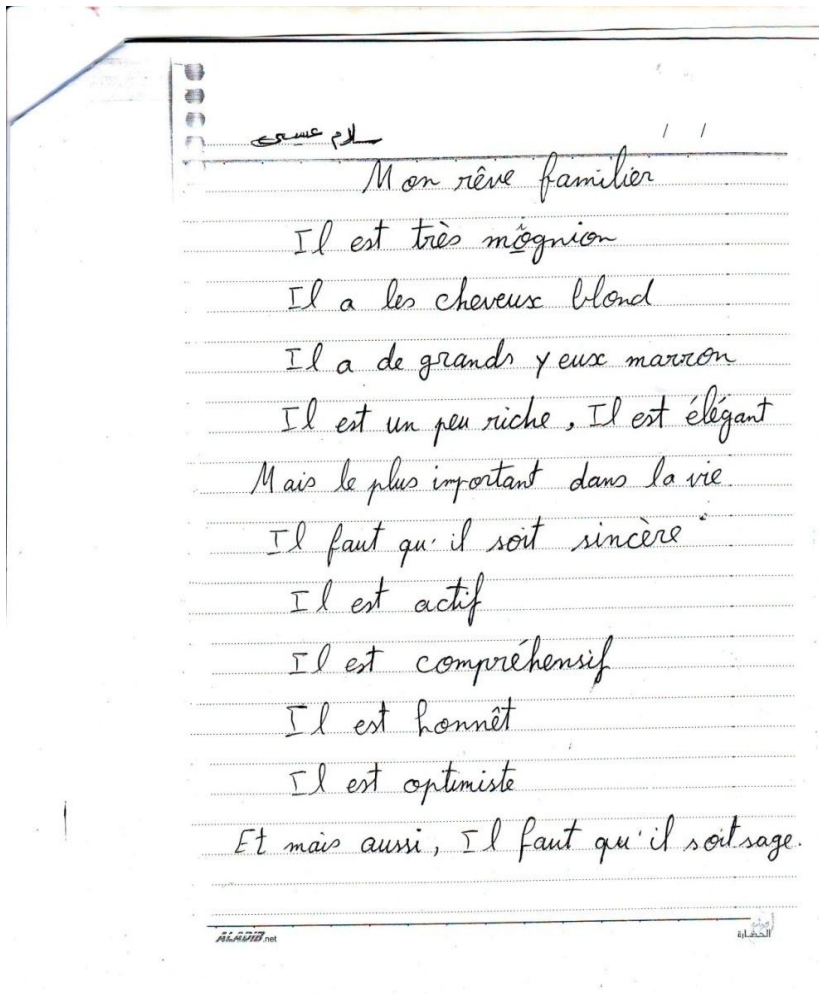 سلام عيسى
/ /
Mon rêve familier
Il est très môgnion
Il a les cheveux blond
Il a de grands yeux marron
Il est un peu riche, Il est élégant
Mais le plus important dans la vie
Il faut qu'il soit sincère
Il est actif
Il est compréhensif
Il est honnêt
Il est optimiste
Et mais aussi, Il faut qu'il soit sage.
ALADIB.net
الحضارة